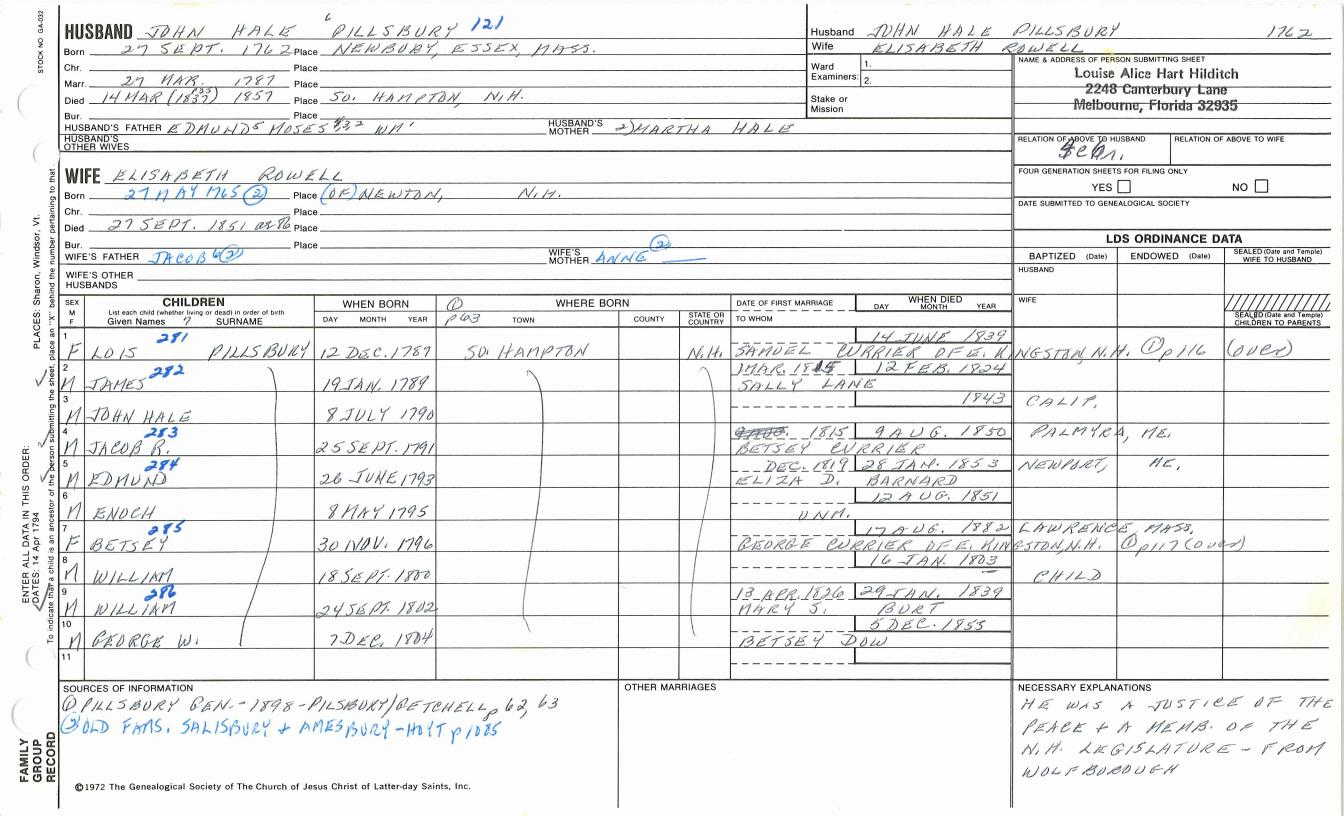 HUSBAND JOHN HALE 6 PILLSBURY 121
Born 27 SEPT. 1762 Place NEWBURY, ESSEX, MASS.
Chr. Place
Marr. 27 MAR. 1787 Place
Died 14 MAR (1837) 1857 Place SO. HAMPTON, N.H.
Bur. Place
HUSBAND'S FATHER EDMUND5 MOSES WM1 HUSBAND'S MOTHER 2) MARTHA HALE
HUSBAND'S OTHER WIVES
Husband JOHN HALE PILLSBURY 1762
Wife ELISABETH ROWELL
Ward Examiners: 1.
2.
Stake or Mission
NAME & ADDRESS OF PERSON SUBMITTING SHEET
Louise Alice Hart Hilditch
2248 Canterbury Lane
Melbourne, Florida 32935
RELATION OF ABOVE TO HUSBAND RELATION OF ABOVE TO WIFE
WIFE ELISABETH ROWELL
Born 27 MAY 1765 (2) Place (OF) NEWTON, N.H.
Chr. Place
Died 27 SEPT. 1851 ae 86 Place
Bur. Place
WIFE'S FATHER JACOB (2) WIFE'S MOTHER ANNE (2)
WIFE'S OTHER HUSBANDS
FOUR GENERATION SHEETS FOR FILING ONLY
YES NO
DATE SUBMITTED TO GENEALOGICAL SOCIETY
LDS ORDINANCE DATA
BAPTIZED (Date) ENDOWED (Date) SEALED (Date and Temple) WIFE TO HUSBAND
HUSBAND
WIFE
SEALED (Date and Temple) CHILDREN TO PARENTS
SEX M F CHILDREN List each child (whether living or dead) in order of birth Given Names 7 SURNAME
WHEN BORN DAY MONTH YEAR
(1) p63 WHERE BORN TOWN COUNTY STATE OR COUNTRY
DATE OF FIRST MARRIAGE TO WHOM
WHEN DIED DAY MONTH YEAR
1 281 14 JUNE 1839
F LOIS PILLSBURY 12 DEC. 1787 SO. HAMPTON N.H. SAMUEL CURRIER OF E. KINGSTON, N.H. (1) p116 (over)
2 282 MAR. 1815 12 FEB. 1824
M JAMES 19 JAN. 1789 SALLY LANE
3 1843 CALIF.
M JOHN HALE 8 JULY 1790
4 283 1815 9 AUG. 1850 PALMYRA, ME.
M JACOB R. 25 SEPT. 1791 BETSEY CURRIER
5 284 DEC. 1819 28 JAN. 1853 NEWPORT, ME.
M EDMUND 26 JUNE 1793 ELIZA D. BARNARD
6 12 AUG. 1851
M ENOCH 8 MAY 1795 UNM.
7 285 17 AUG. 1882 LAWRENCE MASS.
F BETSEY 30 NOV. 1796 GEORGE CURRIER OF E. KINGSTON, N.H. (1) p117 (over)
8 16 JAN. 1803 CHILD
M WILLIAM 18 SEPT. 1800
9 286 13 APR. 1826 29 JAN. 1839
M WILLIAM 24 SEPT. 1802 MARY S. BURT
10 5 DEC. 1855
M GEORGE W. 7 DEC. 1804 BETSEY DOW
11
SOURCES OF INFORMATION
(1) PILLSBURY GEN.-1898-PILSBURY/GETCHELL p 62, 63
(2) OLD FAMS. SALISBURY + AMESBURY-HOYT p 1085
OTHER MARRIAGES
NECESSARY EXPLANATIONS
HE WAS A JUSTICE OF THE
PEACE + A MEMB. OF THE
N.H. LEGISLATURE - FROM
WOLFBOROUGH
©1972 The Genealogical Society of The Church of Jesus Christ of Latter-day Saints, Inc.
STOCK NO. GA-032
PLACES: Sharon, Windsor, Vt.
ENTER ALL DATA IN THIS ORDER:
DATES: 14 Apr 1794
To indicate that a child is an ancestor of the person submitting the sheet, place an "X" behind the number pertaining to that
FAMILY
GROUP
RECORD